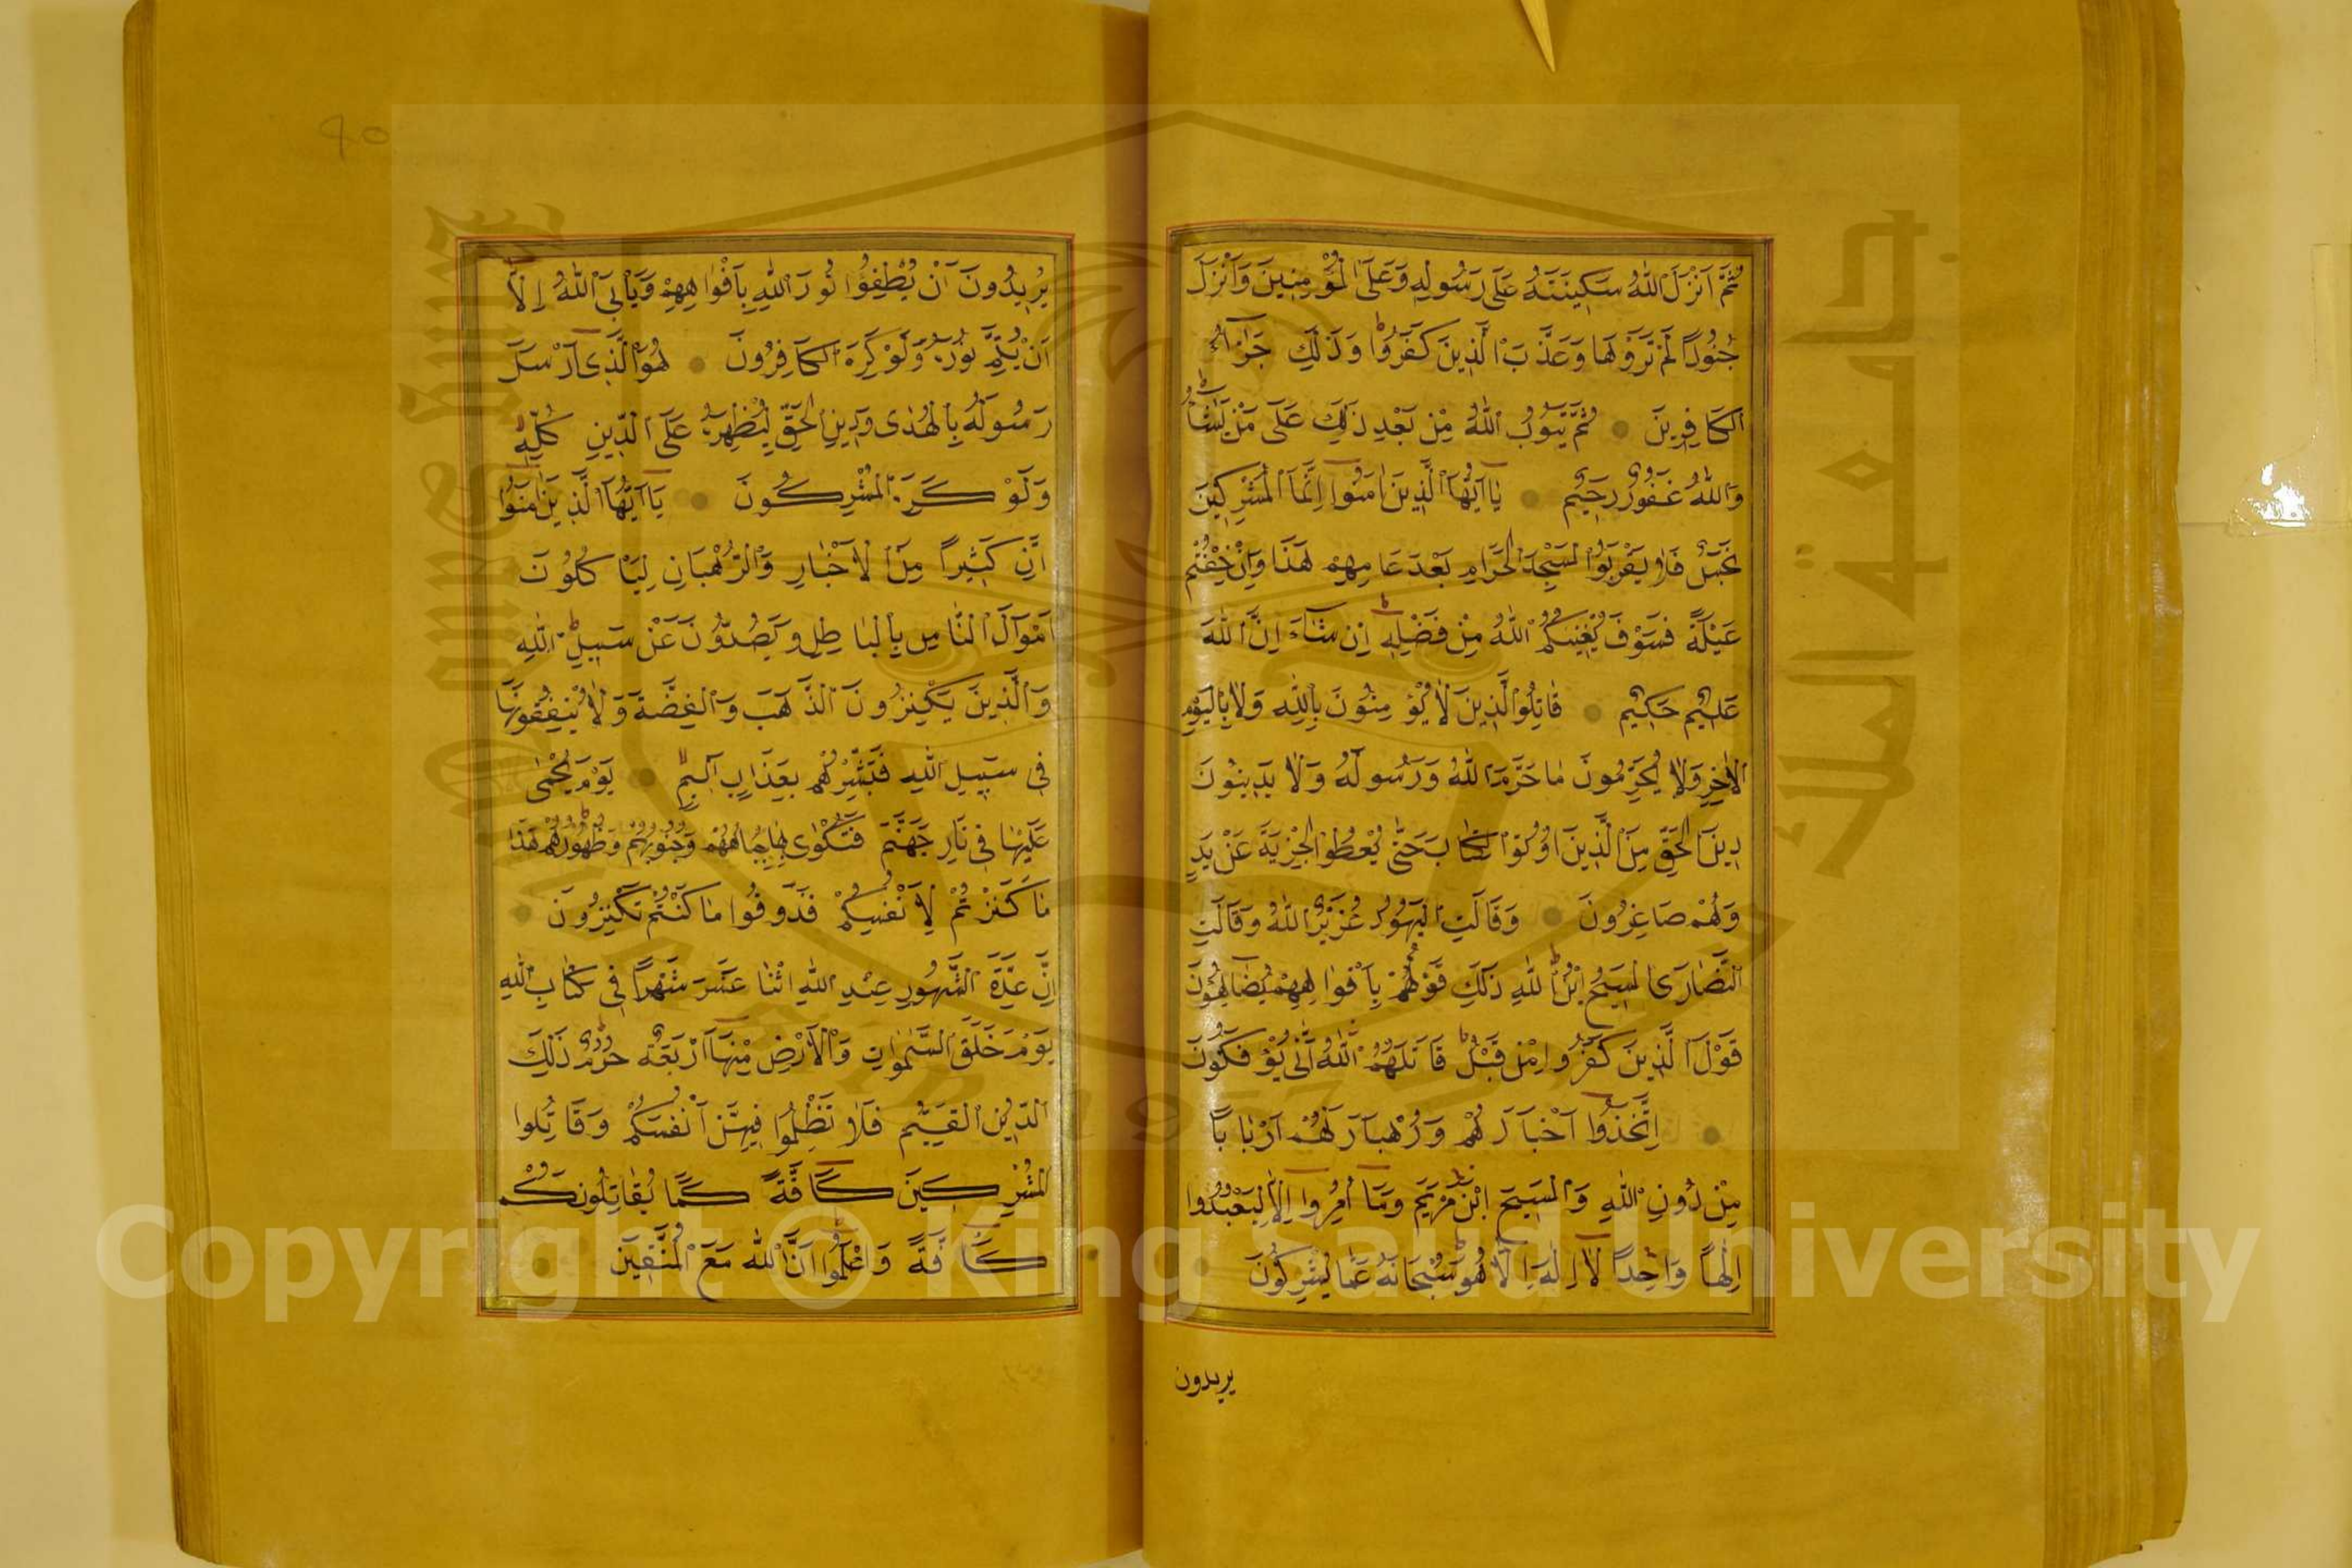 ثُمَّ اَنْزَلَ اللّٰهُ سَكِينَتَهُ عَلٰى رَسُولِهِ وَعَلَى الْمُؤْمِنِينَ وَاَنْزَلَ
جُنُودًا لَمْ تَرَوْهَا وَعَذَّبَ الَّذِينَ كَفَرُوا وَذٰلِكَ جَزَاءُ
الكَافِرِينَ ثُمَّ يَتُوبُ اللّٰهُ مِنْ بَعْدِ ذٰلِكَ عَلٰى مَنْ يَشَاءُ
وَاللّٰهُ غَفُورٌ رَحِيمٌ يَا اَيُّهَا الَّذِينَ اٰمَنُوا اِنَّمَا الْمُشْرِكِينَ
نَجَسٌ فَلَا يَقْرَبُوا الْمَسْجِدَ الْحَرَامِ بَعْدَ عَامِهِمْ هٰذَا وَاِنْ خِفْتُمْ
عَيْلَةً فَسَوْفَ يُغْنِيكُمُ اللّٰهُ مِنْ فَضْلِهِ اِنْ شَاءَ اِنَّ اللّٰهَ
عَلِيمٌ حَكِيمٌ قَاتِلُوا الَّذِينَ لَا يُؤْمِنُونَ بِاللّٰهِ وَلَا بِالْيَوْمِ
الْاٰخِرِ وَلَا يُحَرِّمُونَ مَا حَرَّمَ اللّٰهُ وَرَسُولَهُ وَلَا يَدِينُونَ
دِينَ الْحَقِّ مِنَ الَّذِينَ اُوتُوا الْكِتَابَ حَتّٰى يُعْطُوا الْجِزْيَةَ عَنْ يَدٍ
وَهُمْ صَاغِرُونَ وَقَالَتِ الْيَهُودُ عُزَيْرٌ اللّٰهُ وَقَالَتِ
النَّصَارَى الْمَسِيحُ ابْنُ اللّٰهِ ذٰلِكَ قَوْلُهُمْ بِاَفْوَاهِهِمْ يُضَاهِؤُنَ
قَوْلَ الَّذِينَ كَفَرُوا مِنْ قَبْلُ قَاتَلَهُمُ اللّٰهُ اَنّٰى يُؤْفَكُونَ
اِتَّخَذُوا اَحْبَارَهُمْ وَرُهْبَارَنَهُمْ اَرْبَابًا
مِنْ دُونِ اللّٰهِ وَالْمَسِيحَ ابْنَ مَرْيَمَ وَمَا اُمِرُوا اِلَّا لِيَعْبُدُوا
اِلٰهًا وَاحِدًا لَا اِلٰهَ اِلَّا هُوَ سُبْحَانَهُ عَمَّا يُشْرِكُونَ
يريدون
٩٥
يُرِيدُونَ اَنْ يُطْفِؤُا نُورَ اللّٰهِ بِاَفْوَاهِهِمْ وَيَأْبَى اللّٰهُ اِلَّا
اَنْ يُتِمَّ نُورَهُ وَلَوْ كَرِهَ الكَافِرُونَ هُوَ الَّذِى اَرْسَلَ
رَسُولَهُ بِالْهُدٰى وَدِينِ الْحَقِّ لِيُظْهِرَهُ عَلَى الدِّينِ كُلِّهِ
وَلَوْ كَرِهَ الْمُشْرِكُونَ يَا اَيُّهَا الَّذِينَ اٰمَنُوا
اِنَّ كَثِيرًا مِنَ الْاَحْبَارِ وَالرُّهْبَانِ لِيَاْكُلُونَ
اَمْوَالَ النَّاسِ بِالْبَاطِلِ وَيَصُدُّونَ عَنْ سَبِيلِ اللّٰهِ
وَالَّذِينَ يَكْنِزُونَ الذَّهَبَ وَالْفِضَّةَ وَلَا يُنْفِقُونَهَا
فِى سَبِيلِ اللّٰهِ فَبَشِّرْهُمْ بِعَذَابٍ اَلِيمٍ يَوْمَ يُحْمٰى
عَلَيْهَا فِى نَارِ جَهَنَّمَ فَتُكْوٰى بِهَا جِبَاهُهُمْ وَجُنُوبُهُمْ وَظُهُورُهُمْ هٰذَا
مَا كَنَزْتُمْ لِاَنْفُسِكُمْ فَذُوقُوا مَا كُنْتُمْ تَكْنِزُونَ
اِنَّ عِدَّةَ الشُّهُورِ عِنْدِ اللّٰهِ اثْنَا عَشَرَ شَهْرًا فِى كِتَابِ اللّٰهِ
يَوْمَ خَلَقَ السَّمٰوَاتِ وَالْاَرْضَ مِنْهَا اَرْبَعَةٌ حُرُمٌ ذٰلِكَ
الدِّينُ الْقَيِّمُ فَلَا تَظْلِمُوا فِيهِنَّ اَنْفُسَكُمْ وَقَاتِلُوا
الْمُشْرِكِينَ كَافَّةً كَمَا يُقَاتِلُونَكُمْ
كَافَّةً وَاعْلَمُوا اَنَّ اللّٰهَ مَعَ الْمُتَّقِينَ
جامعة الملك سعود
King Saud University
Copyright © King Saud University